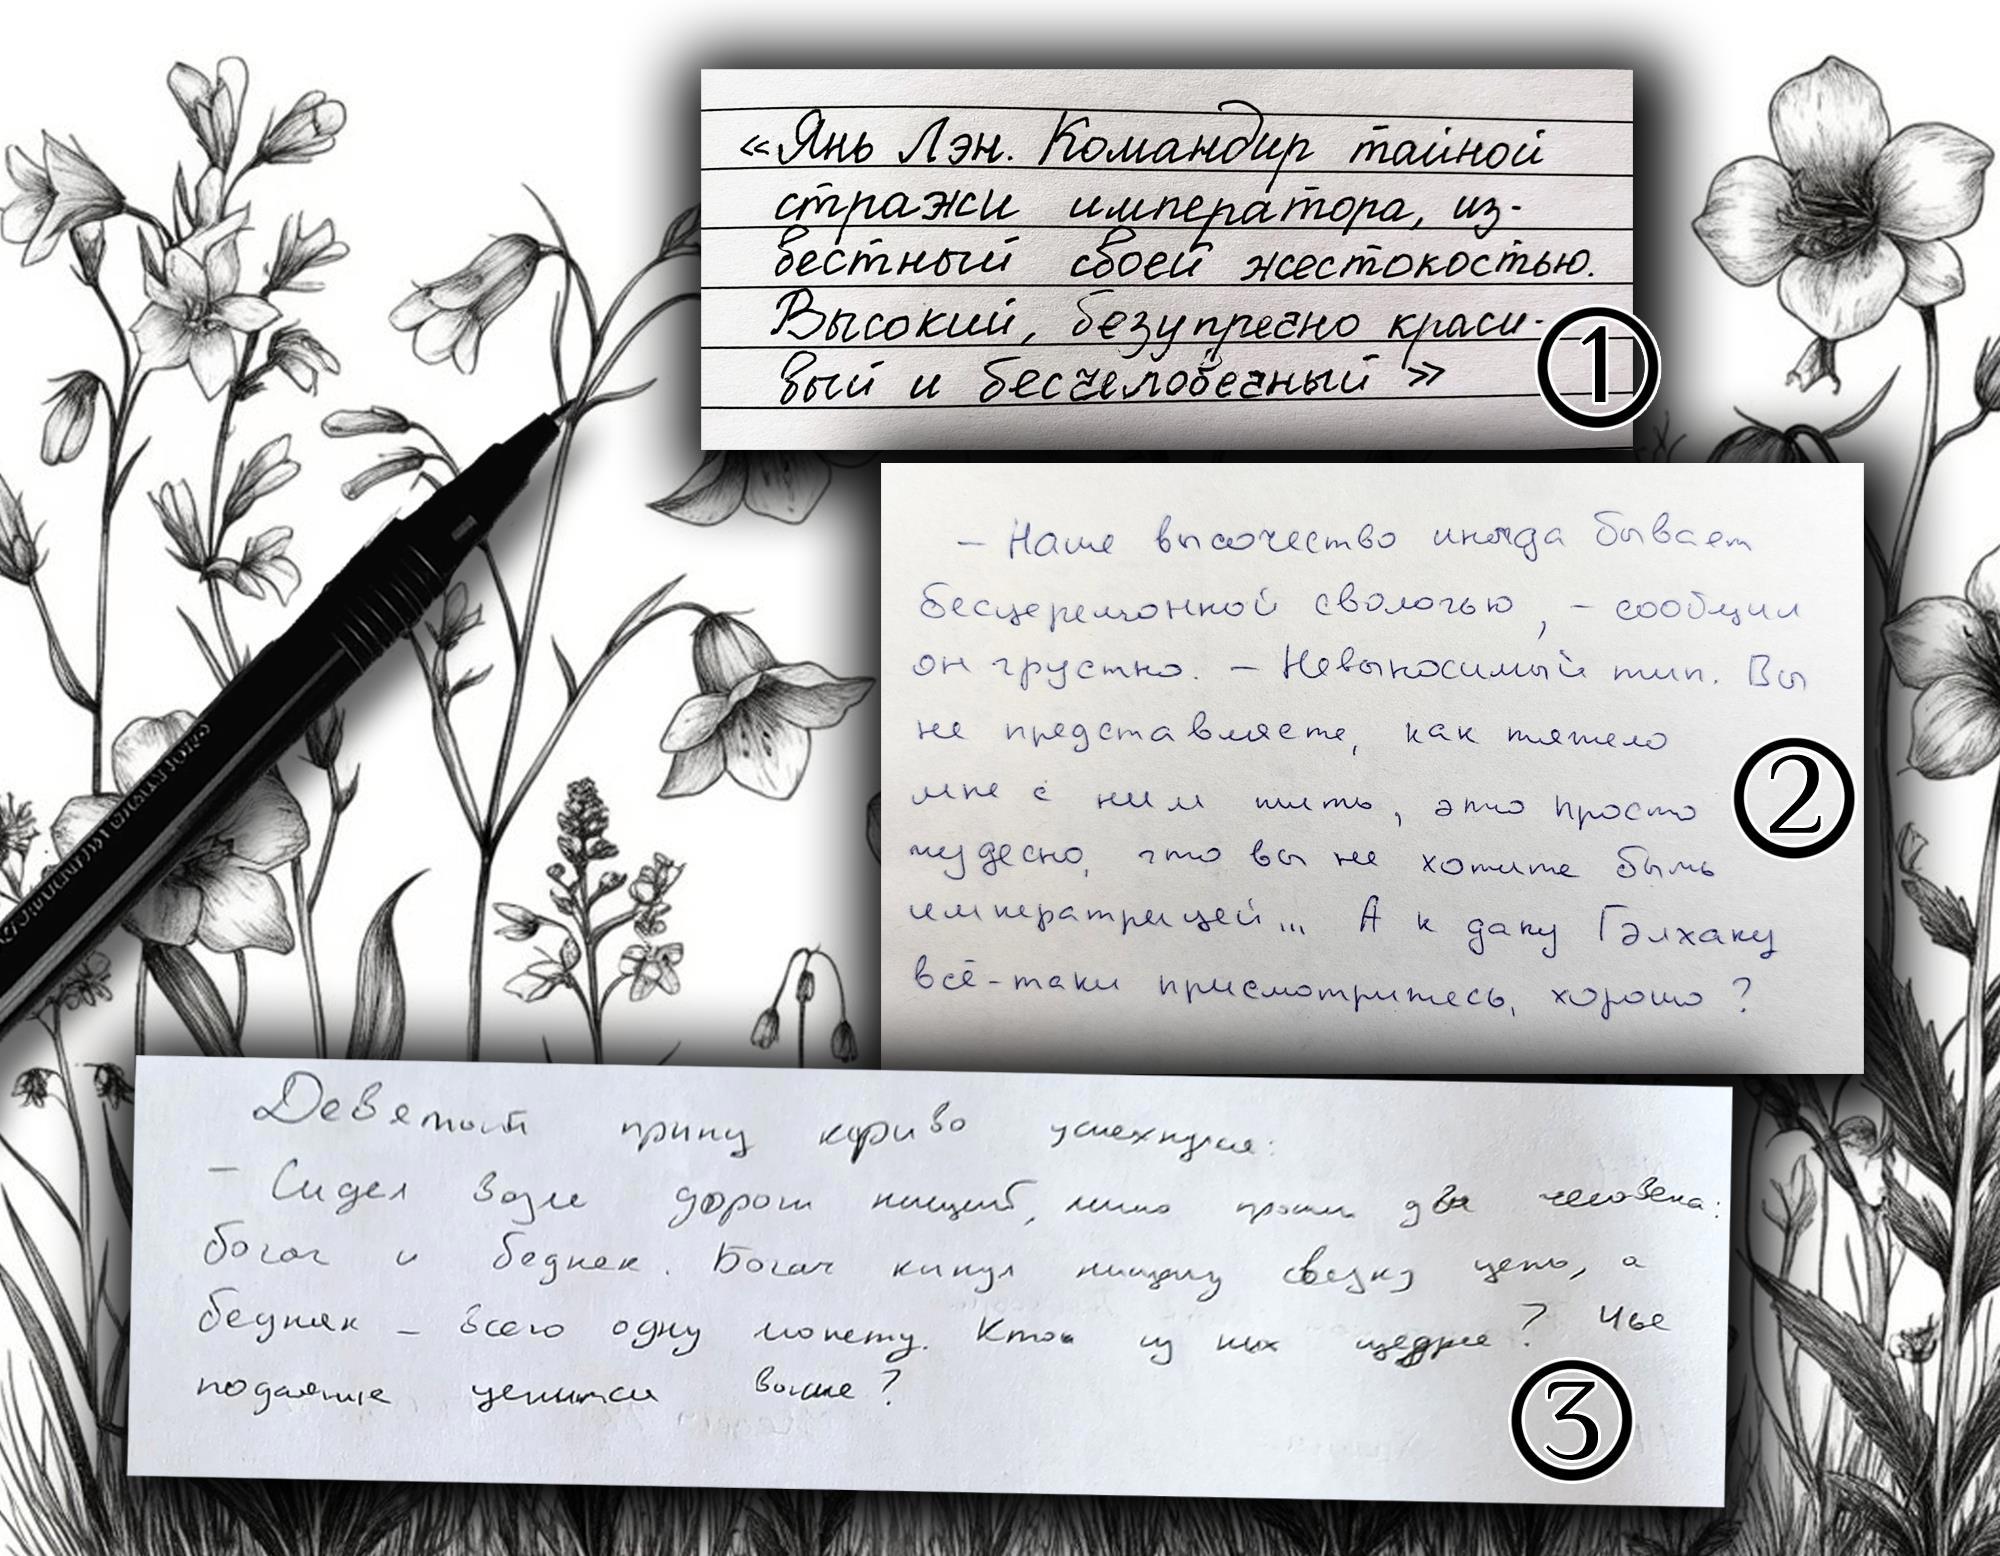 «Янь Лэн. Командир тайной
стражи императора, из-
вестный своей жестокостью.
Высокий, безупречно краси-
вый и бесчеловечный»
1
— Наше высочество иногда бывает
бесцеремонной сволочью, – сообщил
он грустно. – Невыносимый тип. Вы
не представляете, как тяжело
мне с ним жить, это просто
чудесно, что вы не хотите быть
императрицей... А к дану Гэлхаку
всё-таки присмотритесь, хорошо?
2
Девятый принц криво усмехнулся:
– Сидел возле дороги нищий, мимо прошли два человека:
богач и бедняк. Богач кинул нищему связку цянь, а
бедняк – всего одну монету. Кто из них щедрее? Чье
подаяние ценится выше?
3